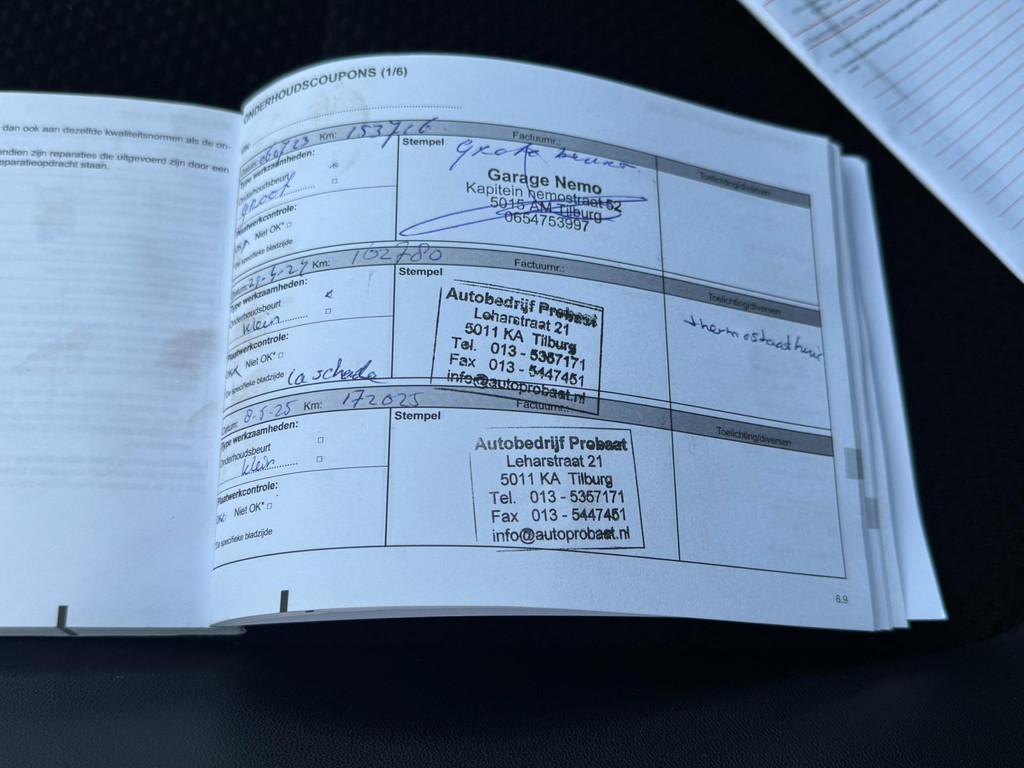 dan ook aan dezelfde kwaliteitsnormen als de on-
endien zijn reparaties die uitgevoerd zijn door een
eparatieopdracht staan.
ONDERHOUDSCOUPONS (1/6)
Km: 153716 Factuurnr.:
Type werkzaamheden:
Onderhoudsbeurt
groot
Plaatwerkcontrole:
Niet OK*
*Zie specifieke bladzijde
Stempel Grote beurt
Garage Nemo
Kapitein nemostraat 62
5015 AM Tilburg
0654753997
Toelichting/diversen
Km: 162780 Factuurnr.:
Type werkzaamheden:
Onderhoudsbeurt
klein
Plaatwerkcontrole:
Niet OK*
*Zie specifieke bladzijde
schade
Stempel
Autobedrijf Probaat
Leharstraat 21
5011 KA Tilburg
Tel. 013 - 5357171
Fax 013 - 5447451
info@autoprobaat.nl
Toelichting/diversen
thermostaathuis
Datum: 8-5-25 Km: 172025 Factuurnr.:
Type werkzaamheden:
Onderhoudsbeurt
klein
Plaatwerkcontrole:
OK: Niet OK*
*Zie specifieke bladzijde
Stempel
Autobedrijf Probaat
Leharstraat 21
5011 KA Tilburg
Tel. 013 - 5357171
Fax 013 - 5447451
info@autoprobaat.nl
Toelichting/diversen
6.9